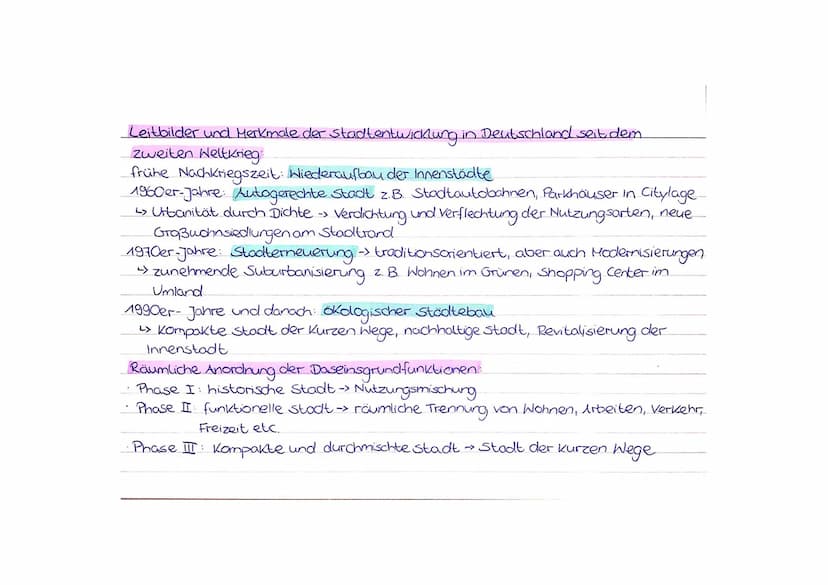 Leitbilder und Merkmale der Stadtentwicklung in Deutschland seit dem
zweiten Weltkrieg:
frühe Nachkriegszeit: Wiederaufbau der Innenstädte
1960er-Jahre: Autogerechte Stadt z.B. Stadtautobahnen, Parkhäuser in Citylage
↳ Urbanität durch Dichte → Verdichtung und Verflechtung der Nutzungsarten, neue
Großwohnsiedlungen am Stadtrand
1970er-Jahre: Stadterneuerung → traditionsorientiert, aber auch Modernisierungen
↳ zunehmende Suburbanisierung z.B. Wohnen im Grünen, Shopping Center im
Umland
1990er-Jahre und danach: ökologischer Städtebau
↳ Kompakte Stadt der kurzen Wege, nachhaltige Stadt, Revitalisierung der
Innenstadt
Räumliche Anordnung der Daseinsgrundfunktionen:
· Phase I: historische Stadt → Nutzungsmischung
· Phase II: funktionelle Stadt → räumliche Trennung von Wohnen, Arbeiten, Verkehr,
Freizeit etc.
· Phase III: Kompakte und durchmischte Stadt → Stadt der kurzen Wege